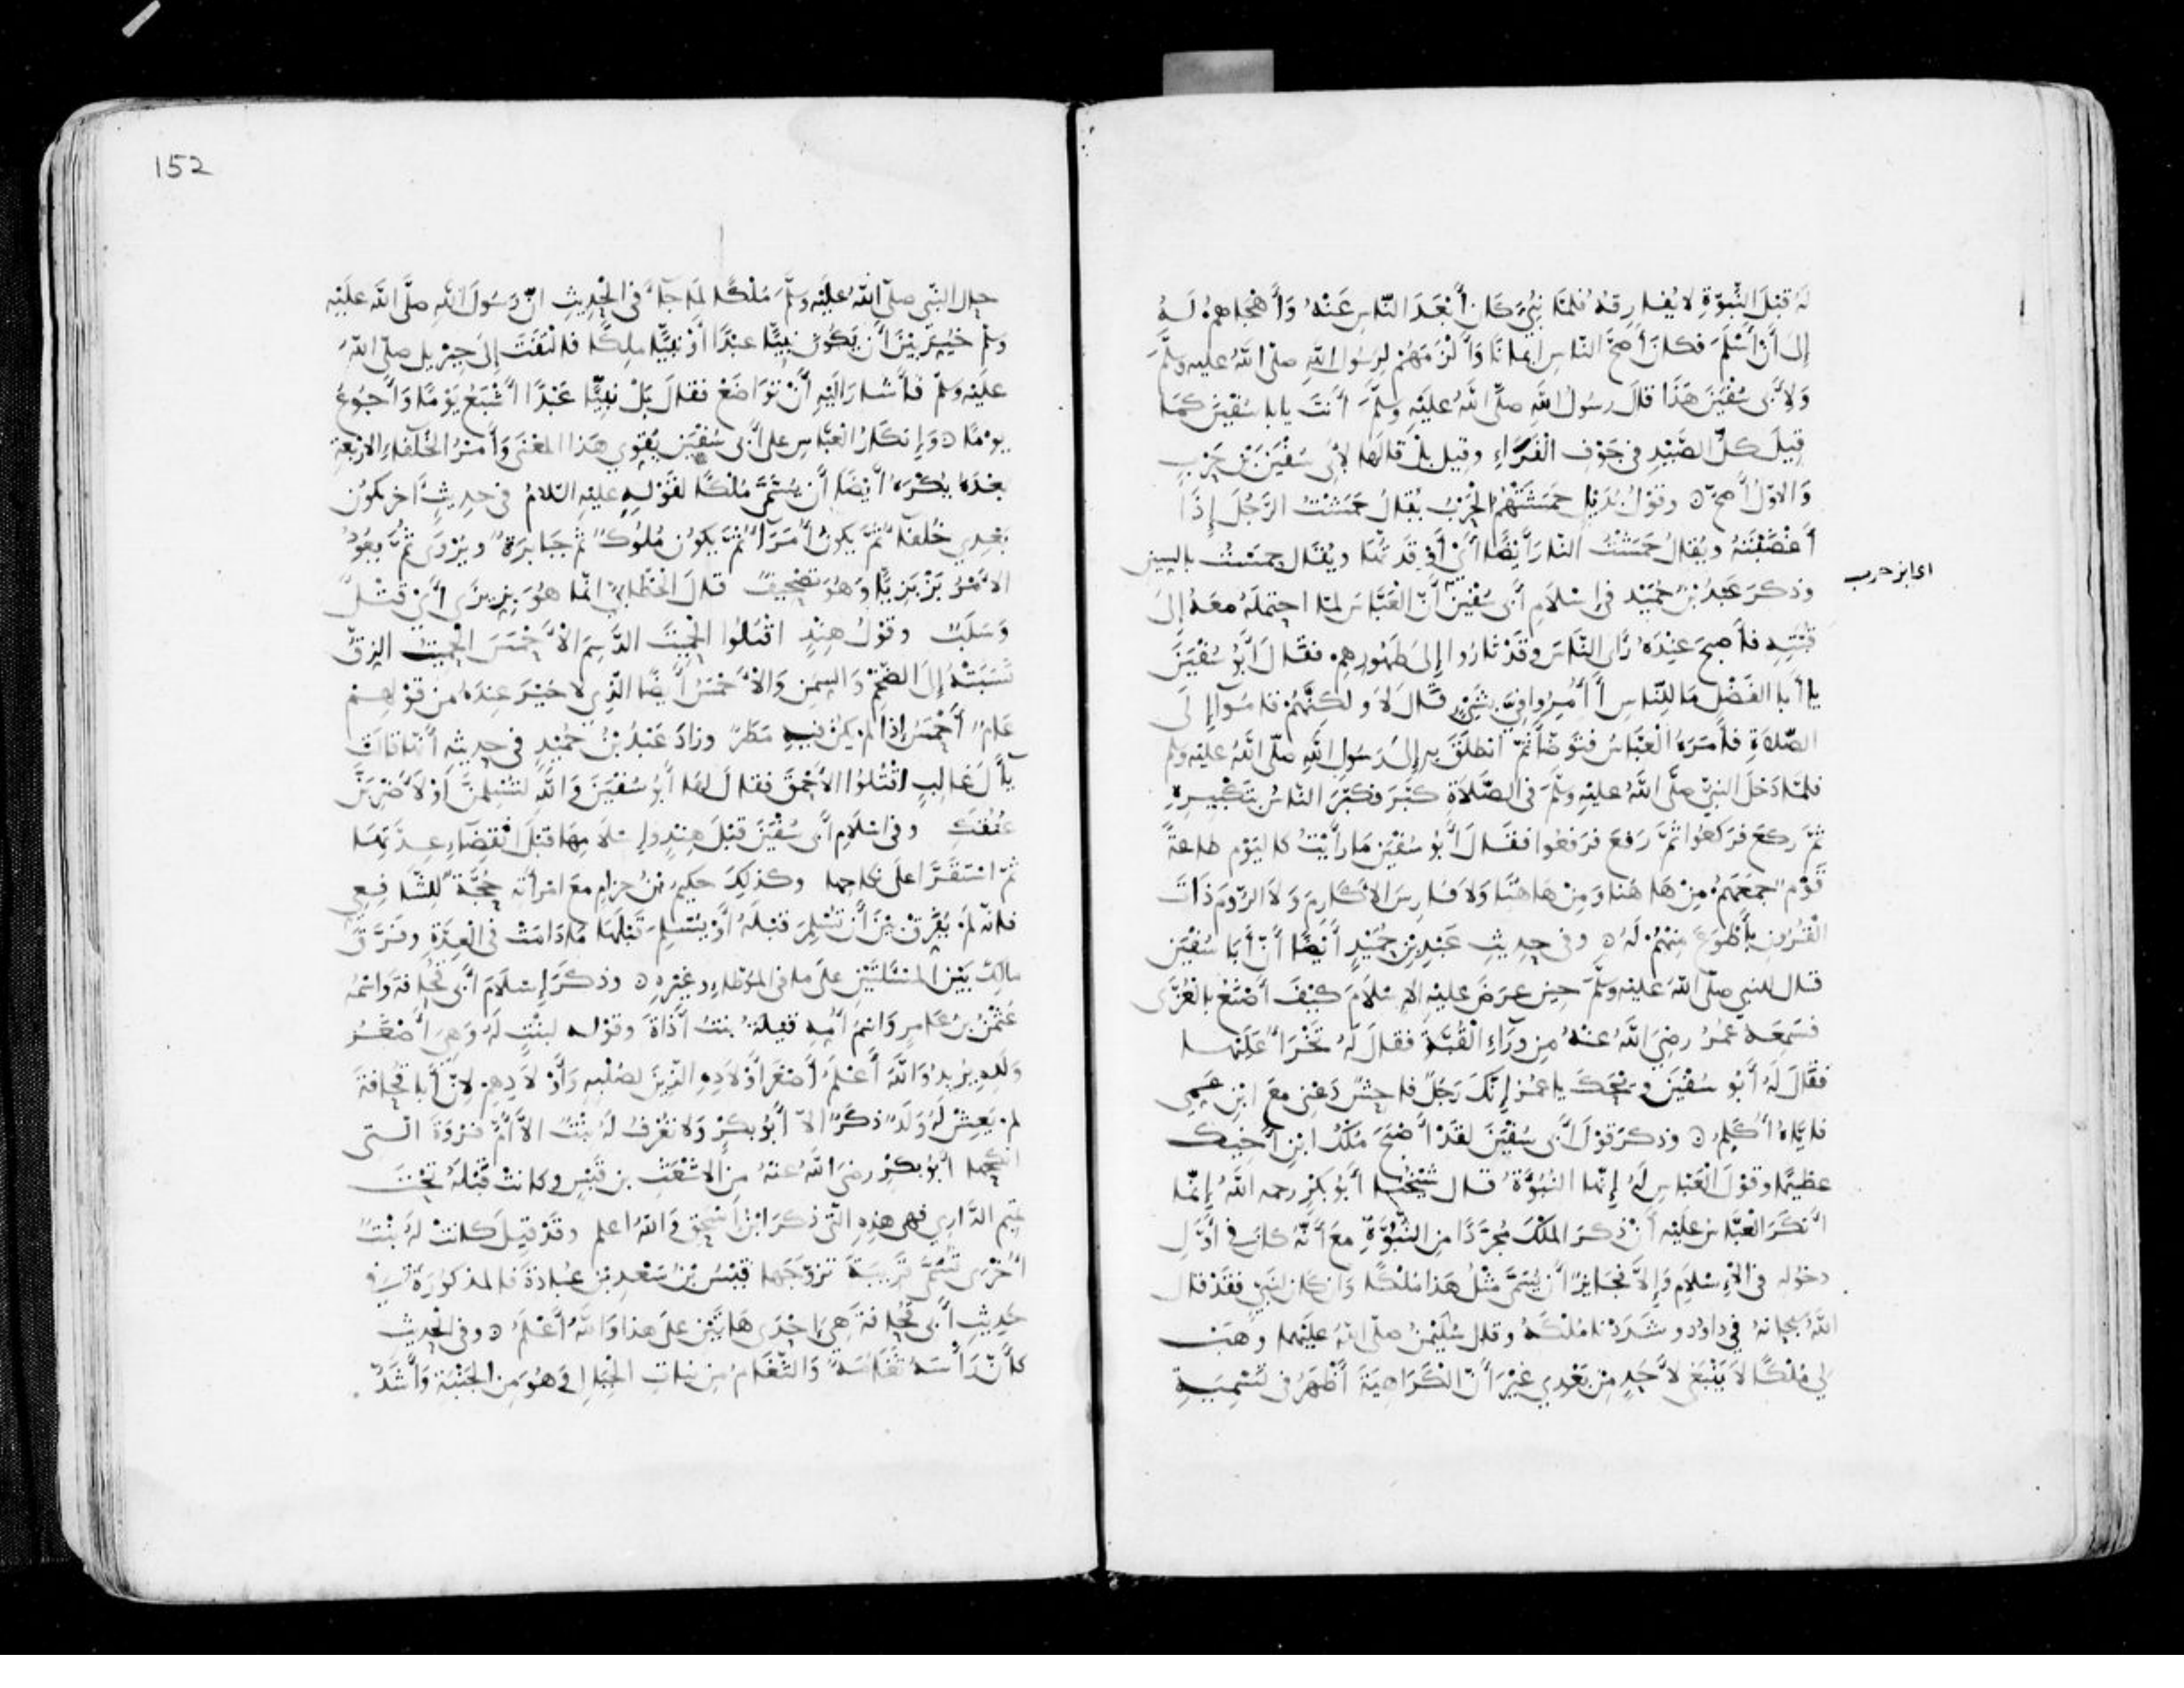 لَهُ قَبْلَ النُّبُوَّةِ لا يُفارِقُهُ فَلَمّا نُبِّئَ كَانَ أَبْعَدَ النّاسِ عَنْهُ وَأَهْجَاهُمْ لَهُ
إِلَى أَنْ أَسْلَمَ فكان أَصَحَّ النّاسِ إِيمانًا وَأَلْزَمَهُمْ لِرَسُولِ اللهِ صلّى اللهُ عليه وسلَّمَ
وَلِأَبِي سُفْيَنَ هَذَا قَالَ رسُولُ اللهِ صلَّى اللهُ عليْهِ وَسلَّمَ أَنتَ يابا سُفْيَنَ كَمَا
قِيلَ كلُّ الصَّيْدِ في جَوْفِ الْفَرَاءِ وقيل بلْ قَالَها لِأَبِي سُفْيَنَ بْنِ حَرْبٍ
وَالاوّلُ أَصحّ ٥ وقَوْلُ بُدَيْلٍ حَمَشَتْهُمُ الْحَرْبُ يُقالُ حَمَشْتُ الرَّجُلَ إِذَا
أَغْضَبْتَهُ ويُقالُ حَمَشْتُ النّارَ أَيْضًا أَيْ أَوْقَدْتُهَا ويُقَال حمسْتُ بالسين
اعا بن حرب
وذكرَ عَبْدُ بْنُ حُمَيْدٍ في إِسْلَامِ أَبِي سُفْيَنَ أَنَّ الْعَبَّاسَ لمّا احتملَهُ معَهُ إِلَى
قُبَّتِهِ فأَصبحَ عِنْدَهُ رَأَى النّاسَ وقَدْ ثَارُوا إِلَى طَهُورِهِم فقَالَ أَبُو سُفْيَنَ
يا أَبا الفَضْلِ مَا لِلنّاسِ أَأُمِرُوا فِيَّ بِشَيْءٍ قَالَ لَا وَلَكِنَّهُمْ قامُوا إِلَى
الصّلاةِ فأَمَرَهُ الْعَبّاسُ فتَوضّأَ ثمّ انطلَقَ به إِلى رَسُولِ اللهِ صلّى اللهُ عليْه وسلم
فلمّا دَخلَ النبيُّ صلَّى اللهُ عليْهِ وسلَّمَ في الصَّلَاةِ كَبَّرَ فكَبَّرَ النّاسُ بتَكْبِيرِهِ
ثمَّ ركعَ فرَكعُوا ثمَّ رَفعَ فرَفعُوا فقَالَ أَبُو سُفْيَنَ مَا رَأَيْتُ كاليَوْمِ طاعةَ
قَوْمٍ جمعَهُمْ مِنْ هَا هُنا وَمِنْ هَا هُنَا وَلَا فارِسَ الاكَارِمَ وَلَا الرّومَ ذَاتَ
الْقُرُونِ بِأَطْوَعَ مِنْهُمْ لَهُ ٥ وفي حدِيثِ عَبْدِ بْنِ حُمَيْدٍ أَيْضًا أَنّ أَبَا سُفْيَنَ
قال للنبي صلّى اللهُ عليْه وسلَّمَ حِينَ عرَضَ عليْهِ الإِسْلَامَ كَيْفَ أَصْنَعُ بِالْعُزَّى
فسَمِعَه عُمرُ رضِيَ اللهُ عنْهُ مِن وَرَاءِ الْقُبَّةِ فقالَ لَهُ تَخْرَأُ عَلَيْها
فقَالَ لَهُ أَبُو سُفْيَنَ وَيْحَكَ يا عُمَرُ إِنّكَ رَجُلٌ فاحِشٌ دَعْنِي معَ ابْنِ عَمِي
فإِيَّاهُ أُكَلِّمُ ٥ وذكَرَ قَوْلَ أَبِي سُفْيَنَ لقَدْ أَصْبَحَ مُلْكُ ابْنِ أَخِيكَ
عظِيمًا وقَوْلَ العَبّاسِ لَهُ إِنّها النُّبُوَّةُ قال شَيْخُنا أَبُو بَكْرٍ رحمه اللهُ إِنَّما
أَنْكَرَ العَبَّاسُ علَيْهِ أَنْ ذكَرَ المُلْكَ مُجَرَّدًا مِنَ النُّبُوَّةِ معَ أَنَّهُ كان في أَوَّلِ
دخُولِهِ في الإِسْلَامِ وَإِلَّا فجَايِزٌ أَنْ يُسَمَّى مِثْلُ هَذَا مُلْكًا وَإِن كَانَ لِنَبِيٍّ فقَدْ قالَ
اللهُ سبحانهُ في داوُدَ وشَدَدْنَا مُلْكَهُ وقال سُلَيْمَنُ صلّى اللهُ عليْهما وَهَبْ
لِي مُلْكًا لَا يَنْبَغِي لأَحَدٍ مِنْ بَعْدِي غيْرَ أَنّ الْكَرَاهِيَةَ أَظْهَرُ في تَسْمِيَةِ
152
حالِ النّبي صلّى اللهُ علَيْهِ وَسلَّمَ مُلْكًا لمَا جاءَ في الْحَدِيثِ انّ رَسُولَ اللهِ صلَّى اللهُ علَيْهِ
وسلّم خُيِّرَ بيْنَ أَن يَكُونَ نبِيًّا عَبْدًا أَوْ نَبِيًّا ملِكًا فالْتفَتَ إِلَى جِبْرِيلَ صلّى اللهُ
علَيْهِ وَسلّم فأَشارَ إِلَيْهِ أَنْ تَوَاضَعْ فقالَ بَلْ نبِيًّا عَبْدًا أَشْبَعُ يَوْمًا وَأَجُوعُ
يومًا ٥ وَإِنكَارُ العَبَّاسِ على أَبِي سُفْيَنَ يُقَوِّي هَذا المعْنَى وَأَمْرُ الخُلَفاءِ الارْبعَةِ
بعْدَهُ يُكْرَهُ أَيْضًا أَنْ يُسَمَّى مُلْكًا لقَوْلِهِ عليْهِ السّلامُ في حديثٍ آخر يكُونُ
بَعْدِي خُلَفَاءُ ثُمَّ يكونُ أُمَرَاءُ ثُمَّ يكُون مُلُوكٌ ثُمَّ جَبَابِرَةٌ ويُرْوَى ثُمَّ يعُودُ
الأَمْرُ بَزْبَزِيًّا وَهُوَ تصْحِيفٌ قالَ الْخَطَّابيُّ انّما هُوَ بِزِيزَى أَيْ قَتْلٌ
وَسَلَبٌ وقَوْلُ هِنْدٍ اقْتُلُوا الْحَمِيتَ الدَّسِمَ الأَحْمَسَ الحَمِيتُ الزِقُّ
نَسَبَتْهُ إِلَى الضِّخَمِ وَالسِمَنِ وَالأَحْمَسُ أَيْضًا الّذِي لا خَيْرَ عِندَهُ مِن قَوْلِهِمْ
عَامٌ أَحْمَسُ إِذَا لم يكُنْ فيهِ مَطَرٌ وزادَ عَبْدُ بْنُ حُمَيْدٍ في حديثِه أَنّها قالَتْ
يآلَ غالِبٍ اقْتُلُوا الأَحْمَقَ فقالَ لها أَبُو سُفْيَنَ وَاللهِ لتُسْلِمِنَّ أَوْ لأَضْرِبَنَّ
عُنُقَكِ وفي اسْلَامِ أَبِي سُفْيَنَ قَبْلَ هِنْدٍ وإِسْلَامِهَا قبْلَ انْقِضَاءِ عِدَّتِهَا
ثُمّ اسْتَقَرَّا على نكاحِهما وكذلِكَ حكيمُ بْنُ حِزامٍ معَ امْرأَتِه حُجَّةٌ لِلشّافِعِي
فإنّه لَمْ يُفَرِّقْ بيْنَ أَنْ تُسْلِمَ قَبْلَهُ أَوْ يُسْلِمَ قَبْلَها مَا دَامَتْ في العِدّةِ وفرَّقَ
مالكٌ بَيْن المسْئَلَتَيْنِ على ما في المُوَطَّإِ وغيْرِهِ ٥ وذكَرَ إِسْلَامَ أَبِي قُحافةَ وَاسْمُهُ
عُثْمَنُ بنُ عَامِرٍ وَاسْمُ أُمِّهِ قيْلةُ بنتُ أَذَاةَ وقَوْله لبِنْتٍ لَهُ وَهِيَ أَصْغَرُ
وَلَدِهِ يُرِيدُ وَاللهُ أَعْلمُ أَصْغَرَ أَوْلَادِهِ الّذِينَ لصُلْبِهِ وَأَوْلَادِهِمْ لأَنّ أَبا قُحافةَ
لم يَعِشْ لَهُ وَلَدٌ ذكَرٌ الّا أَبُو بكْرٍ وَلا تُعْرَفُ لَهُ بِنْتٌ الّا أُمَّ فرْوَةَ الّتِي
انكحَها أَبُو بكْرٍ رضيَ اللهُ عنْهُ مِنَ الاشْعَثِ بن قَيْسٍ وكانَتْ قَبْلَهُ تَحْتَ
تميم الدَّارِي فهي هذِهِ الّتي ذكرَ ابْنُ إِسْحَقَ وَاللهُ اعلم وقَدْ قِيلَ كانَتْ لَهُ بِنْتٌ
أُخْرَى تُسَمَّى قُرَيْبَةَ تزوّجَها قَيْسُ بْنُ سَعْدِ بنِ عُبادةَ فالمذكُورَةُ في
حَدِيثِ أَبِي قُحافةَ هِيَ إِحْدَى هَاتَيْنِ على هذا وَاللهُ أَعْلَمُ ٥ وفي الحدِيث
كأَنّ رَأْسَهُ ثَغَامَةٌ وَالثّغَامُ مِن نباتِ الجِبالِ وَهُوَ مِنَ الجَنْبَةِ وَأَشَدُّ